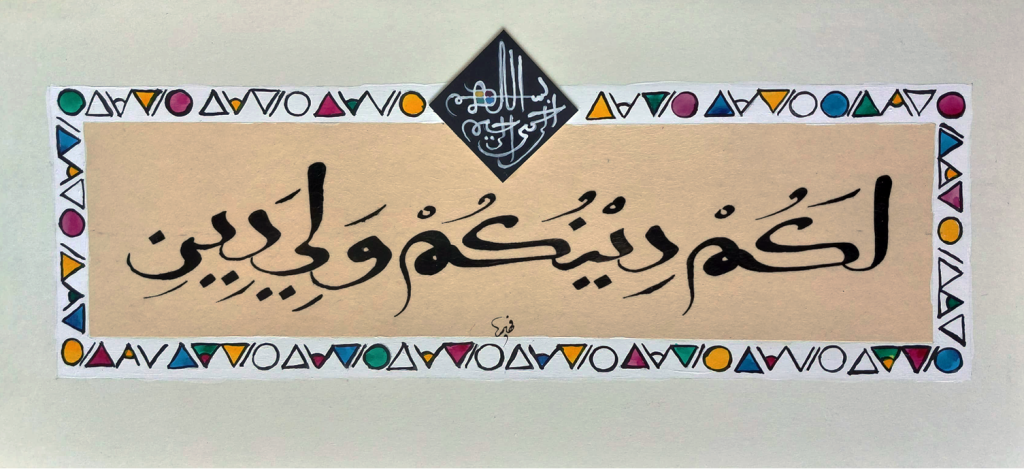 بسم الله
الرحمن الرحيم
لَكُمْ دِيْنُكُمْ وَلِيَ دِيْنِ